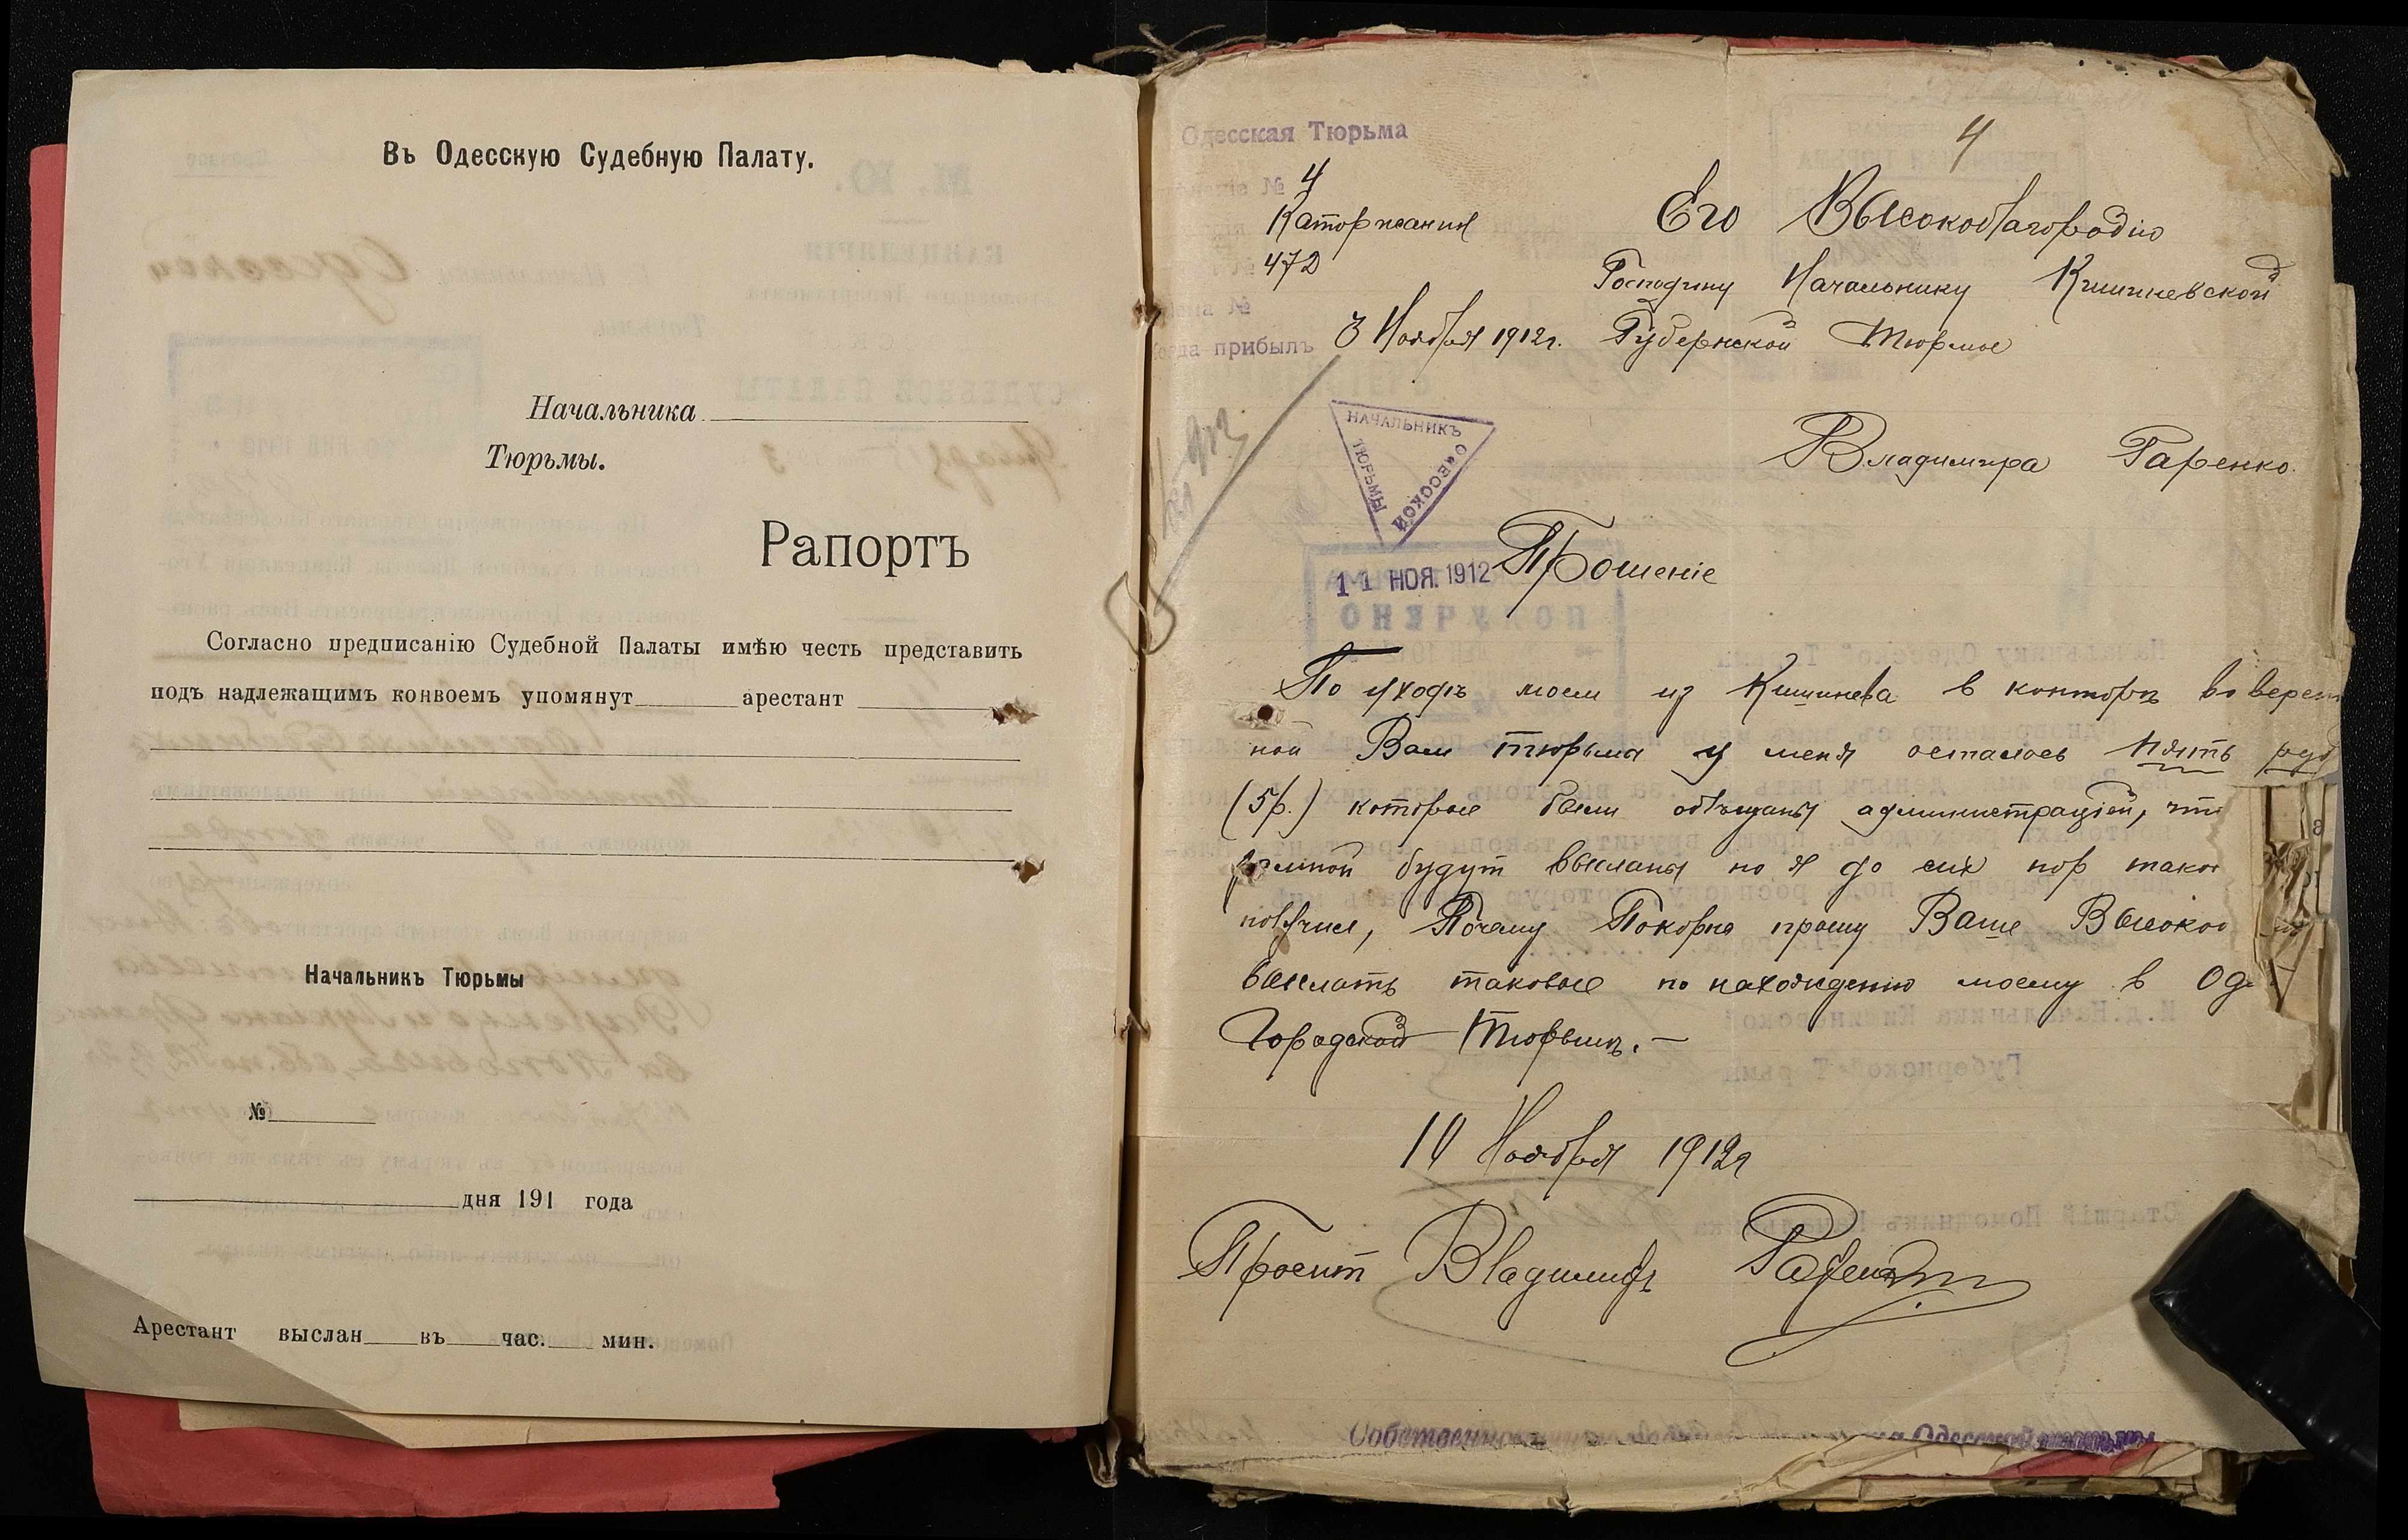 Въ Одесскую Судебную Палату.
Начальника
Тюрьмы.
Рапортъ
Согласно предписанію Судебной Палаты имѣю честь представить
подъ надлежащимъ конвоемъ упомянут арестант
Начальникъ Тюрьмы
№
дня 191 года
Арестант выслан въ час. мин.
Одесская Тюрьма
4
№ 4
Каторжанин
472
№
прибылъ 3 Ноября 1912г.
Его Высокоблагородiю
Господину Начальнику Кишиневской
Губернской Тюрмы
Владимира Гаренко.
НАЧАЛЬНИКЪ ОДЕССКОЙ ТЮРЬМЫ
11 НОЯ. 1912
Прошенiе
По уходѣ моем из Кишинева в конторѣ вверен
ной Вам тюрьмы у меня осталось пять руб
(5р.) которые были обѣщаны администрацiей, что
замной будут высланы но я до сих пор таков
получил, Почему Покорно прошу Ваше Высокоб
выслать таковые по нахождению моему в Оде
Городской Тюрьмѣ. —
10 Ноября 1912г
Просит Владимир Гаренко
Одесской тюрьмы